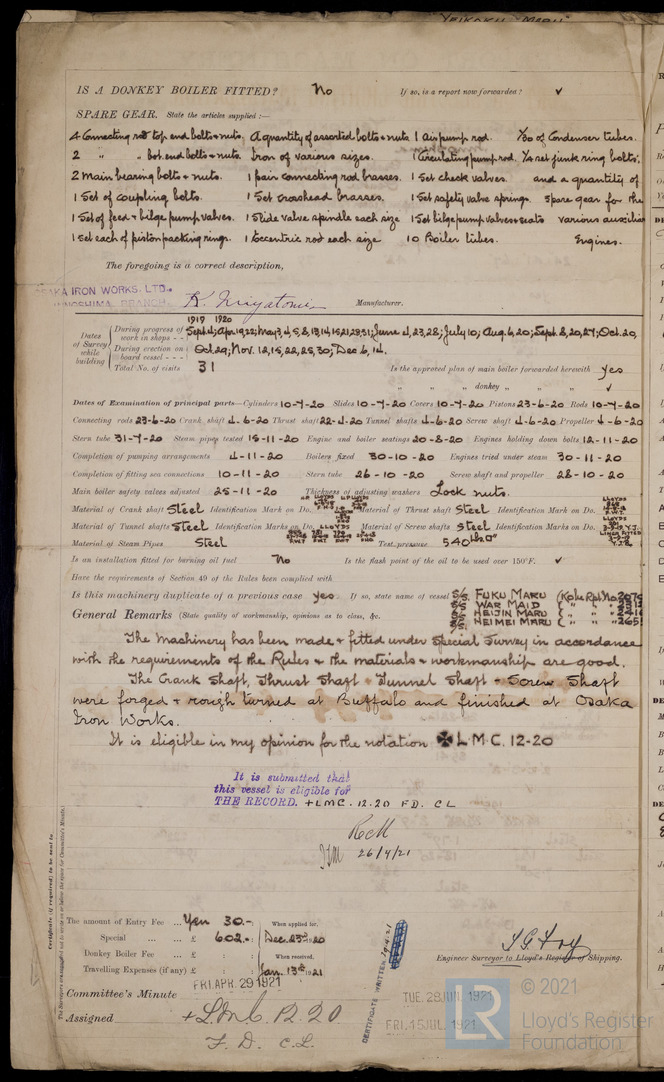 "YEIKOKU MARU"
IS A DONKEY BOILER FITTED? No If so, is a report now forwarded? ✓
SPARE GEAR. State the articles supplied:—
4 Connecting rod top end bolts & nuts. A quantity of assorted bolts & nuts 1 Air pump rod. 1/30 of Condenser tubes.
2 " " bot. end bolts & nuts. Iron of various sizes. 1 Circulating pump rod. 1/2 set junk ring bolts.
2 Main bearing bolts & nuts. 1 pair connecting rod brasses. 1 Set check valves. and a quantity of
1 Set of coupling bolts. 1 Set crosshead brasses. 1 Set safety valve springs. Spare gear for the
1 Set of feed & bilge pump valves. 1 Slide valve spindle each size 1 Set bilge pump valves & seats various auxiliary
1 set each of piston packing rings. 1 Eccentric rod each size 10 Boiler tubes. Engines.
The foregoing is a correct description,
OSAKA IRON WORKS, LTD.
INNOSHIMA BRANCH. K. Miyatomi Manufacturer.
1919 1920
Dates of Survey while building
During progress of work in shops - - Sept. 4; Apr. 19, 22; May 3, 4, 5, 8, 13, 14, 15, 21, 29, 31; June 4, 23, 28; July 10; Aug. 6, 20; Sept. 8, 20, 27; Oct. 20,
During erection on board vessel - - - Oct. 29; Nov. 12, 15, 22, 25, 30; Dec. 6, 14.
Total No. of visits 31 Is the approved plan of main boiler forwarded herewith yes
" " " donkey " " " ✓
Dates of Examination of principal parts—Cylinders 10-7-20 Slides 10-7-20 Covers 10-7-20 Pistons 23-6-20 Rods 10-7-20
Connecting rods 23-6-20 Crank shaft 4-6-20 Thrust shaft 22-4-20 Tunnel shafts 4-6-20 Screw shaft 4-6-20 Propeller 4-6-20
Stern tube 31-7-20 Steam pipes tested 15-11-20 Engine and boiler seatings 20-8-20 Engines holding down bolts 12-11-20
Completion of pumping arrangements 4-11-20 Boilers fixed 30-10-20 Engines tried under steam 30-11-20
Completion of fitting sea connections 10-11-20 Stern tube 26-10-20 Screw shaft and propeller 28-10-20
Main boiler safety valves adjusted 25-11-20 Thickness of adjusting washers Lock nuts.
Material of Crank shaft Steel Identification Mark on Do. Material of Thrust shaft Steel Identification Mark on Do.
Material of Tunnel shafts Steel Identification Marks on Do. LLOYDS Material of Screw shafts Steel Identification Marks on Do.
Material of Steam Pipes Steel Test pressure 540 lbs □"
Is an installation fitted for burning oil fuel No Is the flash point of the oil to be used over 150°F. ✓
Have the requirements of Section 49 of the Rules been complied with
Is this machinery duplicate of a previous case yes. If so, state name of vessel S/S. FUKU MARU (Kobe Rpt No.
S/S. WAR MAID
S/S. HEIJIN MARU
General Remarks (State quality of workmanship, opinions as to class, &c. S/S. HEIMEI MARU
The Machinery has been made & fitted under Special Survey in accordance
with the requirements of the Rules & the materials & workmanship are good.
The Crank Shaft, Thrust Shaft & Tunnel Shaft & Screw Shaft
were forged & rough turned at Buffalo and finished at Osaka
Iron Works.
It is eligible in my opinion for the notation ✠ L.M.C. 12-20
It is submitted that
this vessel is eligible for
THE RECORD. + LMC. 12.20 FD. CL
26/4/21
Certificate (if required) to be sent to
The Surveyors are requested not to write on or below the space for Committee's Minute.
The amount of Entry Fee ... Yen 30.-: When applied for,
Special ... ... £ 602.-: Dec. 23rd 1920
Donkey Boiler Fee ... £ : : When received,
Travelling Expenses (if any) £ : : Jan. 13th 1921
CERTIFICATE WRITTEN 29.4.21
Engineer Surveyor to Lloyd's Register of Shipping.
FRI. APR. 29 1921
Committee's Minute
TUE. 28 JUN. 1921
Assigned + L.M.C. 12.20
FRI. 15 JUL. 1921
F. D. C.L.
LR
© 2021
Lloyd's Register
Foundation